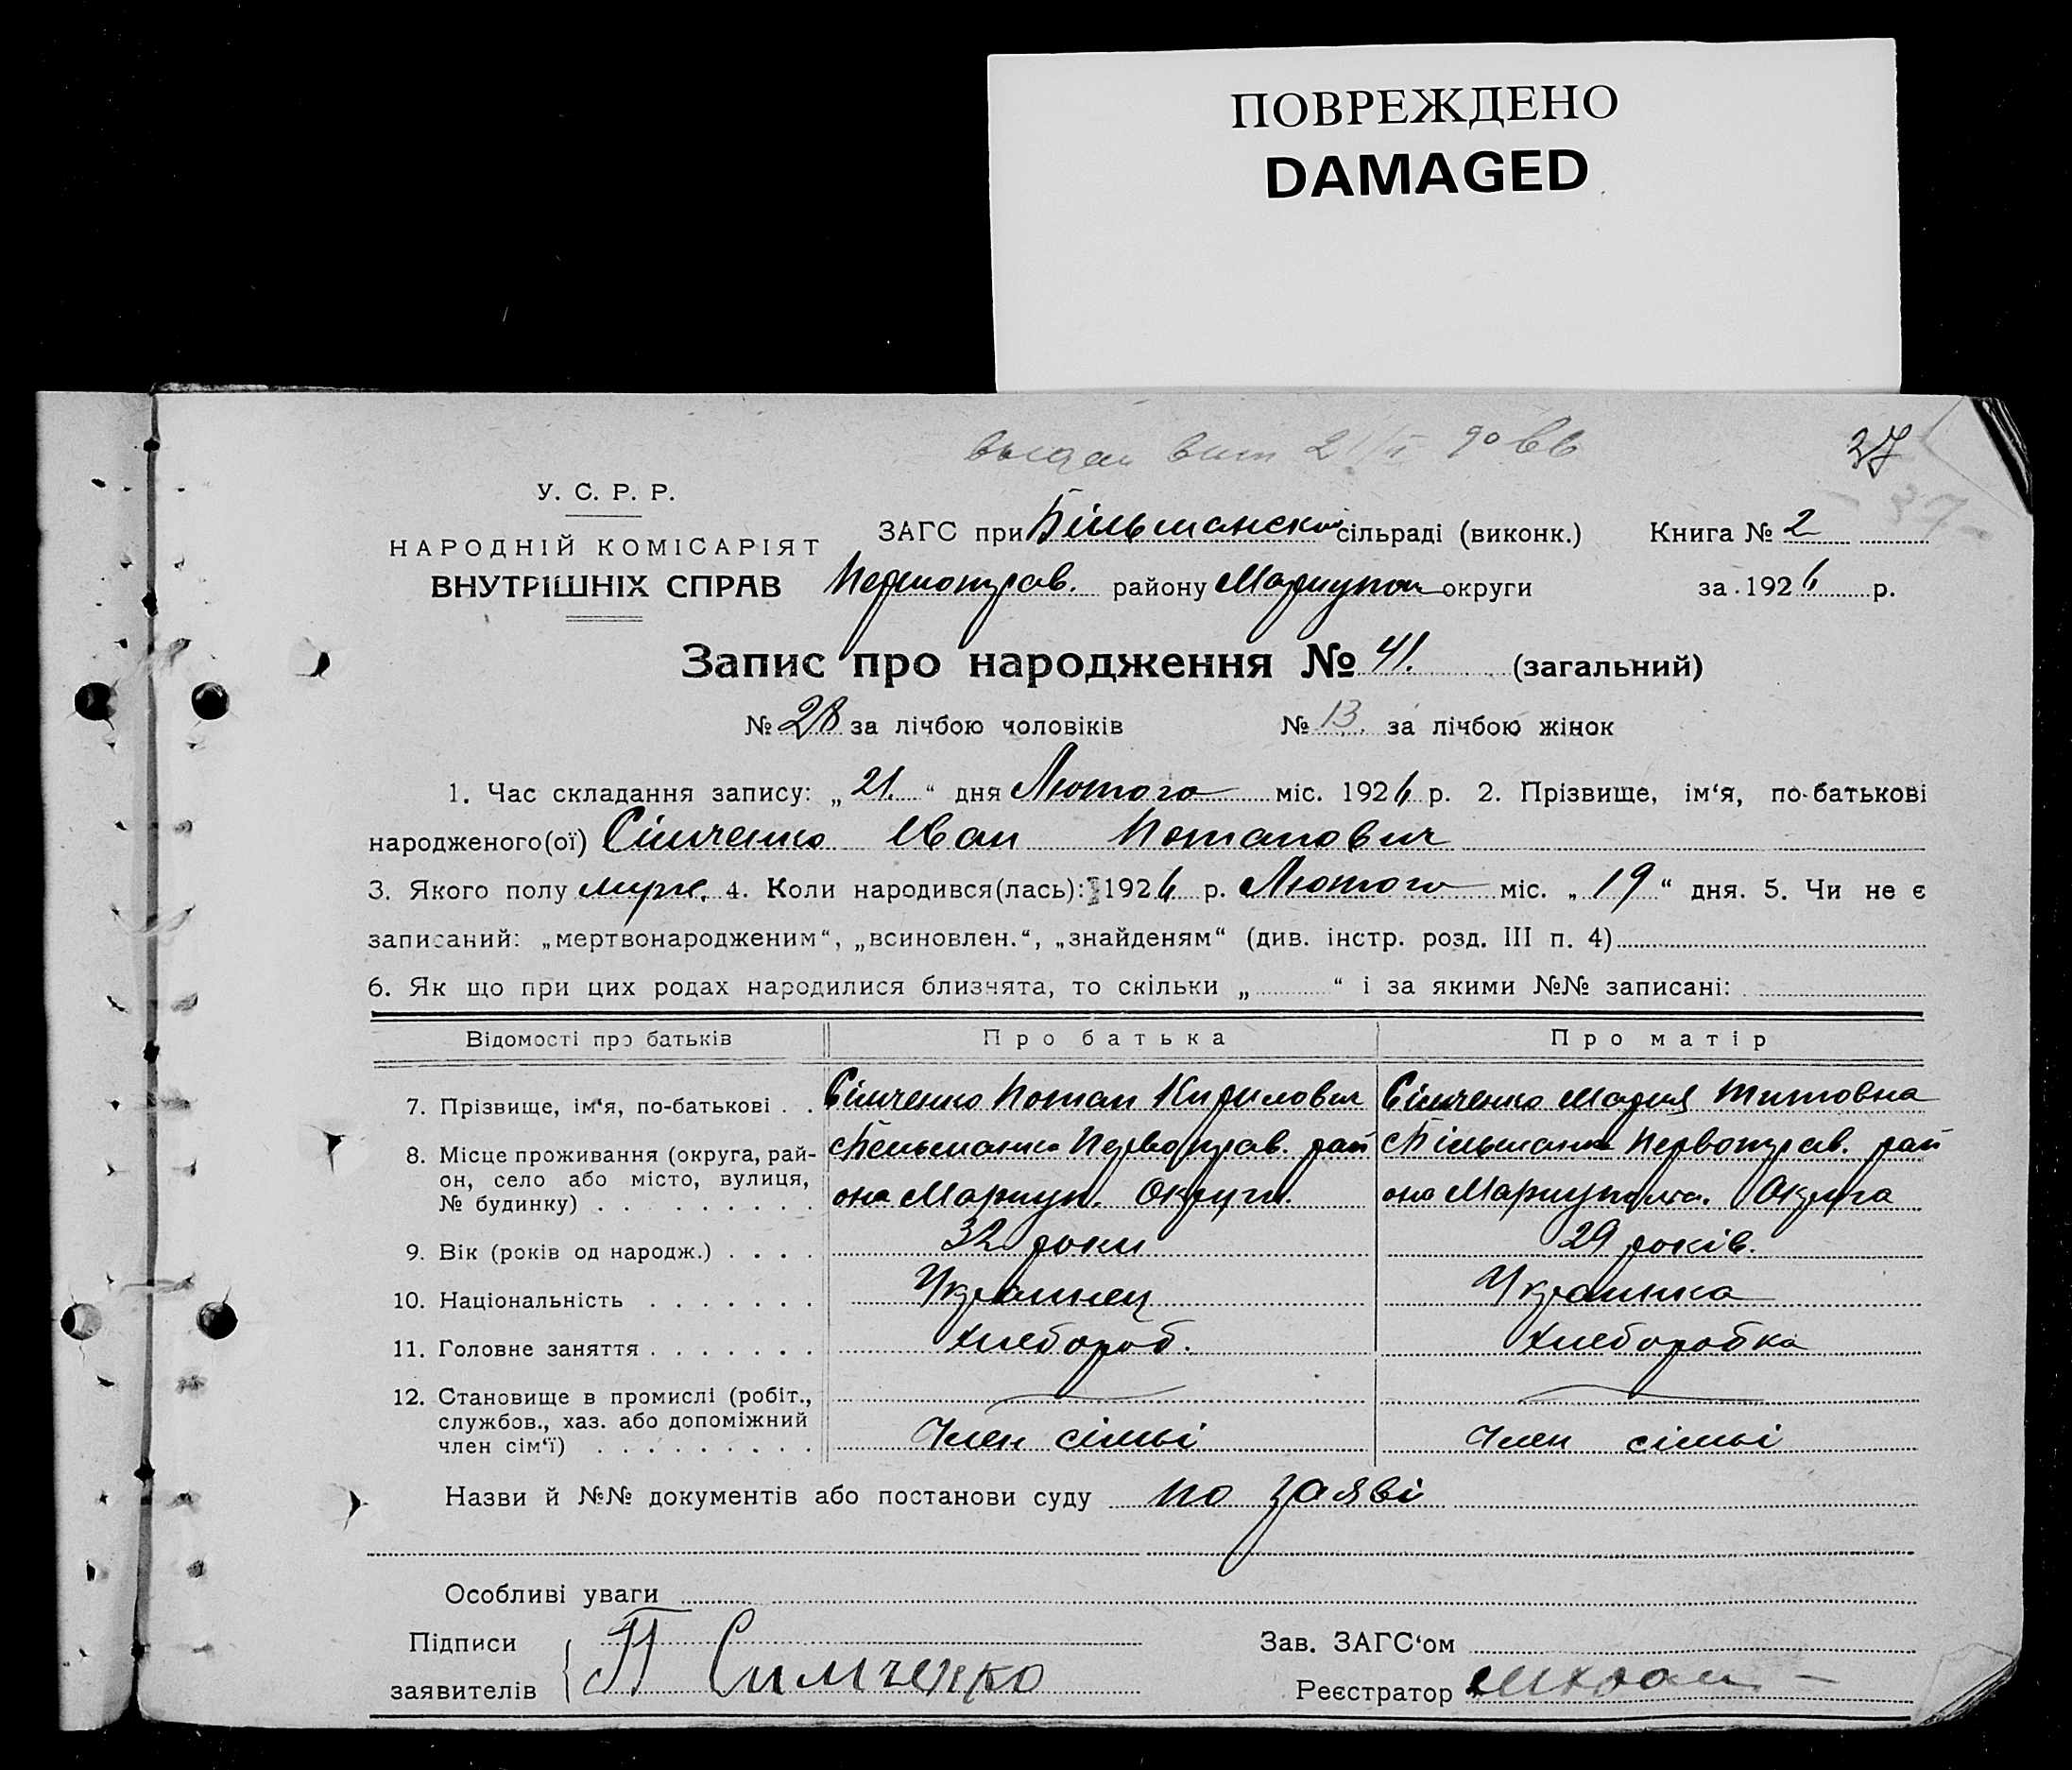 ПОВРЕЖДЕНО
DAMAGED
37
У. С. Р. Р.
НАРОДНІЙ КОМІСАРІЯТ
ВНУТРІШНІХ СПРАВ
ЗАГС при Більманскій сільраді (виконк.) Книга № 2
Первоправ. району Мариупол округи за 1926 р.
Запис про народження № 41. (загальний)
№ 28 за лічбою чоловіків № 13. за лічбою жінок
1. Час складання запису: „21.“ дня Лютого міс. 1926 р. 2. Прізвище, ім‘я, по-батькові
народженого(ої) Сімченко Иван Потапович
3. Якого полу муж. 4. Коли народився(лась): 1926 р. Лютого міс. „19“ дня. 5. Чи не є
записаний: „мертвонародженим“, „всиновлен.“, „знайденям“ (див. інстр. розд. III п. 4)
6. Як що при цих родах народилися близнята, то скільки „ “ і за якими №№ записані:
Відомості про батьків Про батька Про матір
7. Прізвище, ім‘я, по-батькові . . Сімченко Потап Кирилович Сімченко Мария Титовна
8. Місце проживання (округа, рай- с. Бельманка Первоправ. рай с. Більманка Первоправ. рай
он, село або місто, вулиця,
№ будинку) . . . . . . . . . она Мариуп. Округи. она Мариупольск. Округа
9. Вік (років од народж.) . . . . 32 роки 29 років.
10. Національність . . . . . . . Украинец Украинка
11. Головне заняття . . . . . . . Хлебороб. Хлеборобка
12. Становище в промислі (робіт.,
службов., хаз. або допоміжний
член сім‘ї) . . . . . . . . . Член сімьі Член сімьі
Назви й №№ документів або постанови суду по заяві
Особливі уваги
Підписи
заявителів П Симченко
Зав. ЗАГС‘ом
Реєстратор